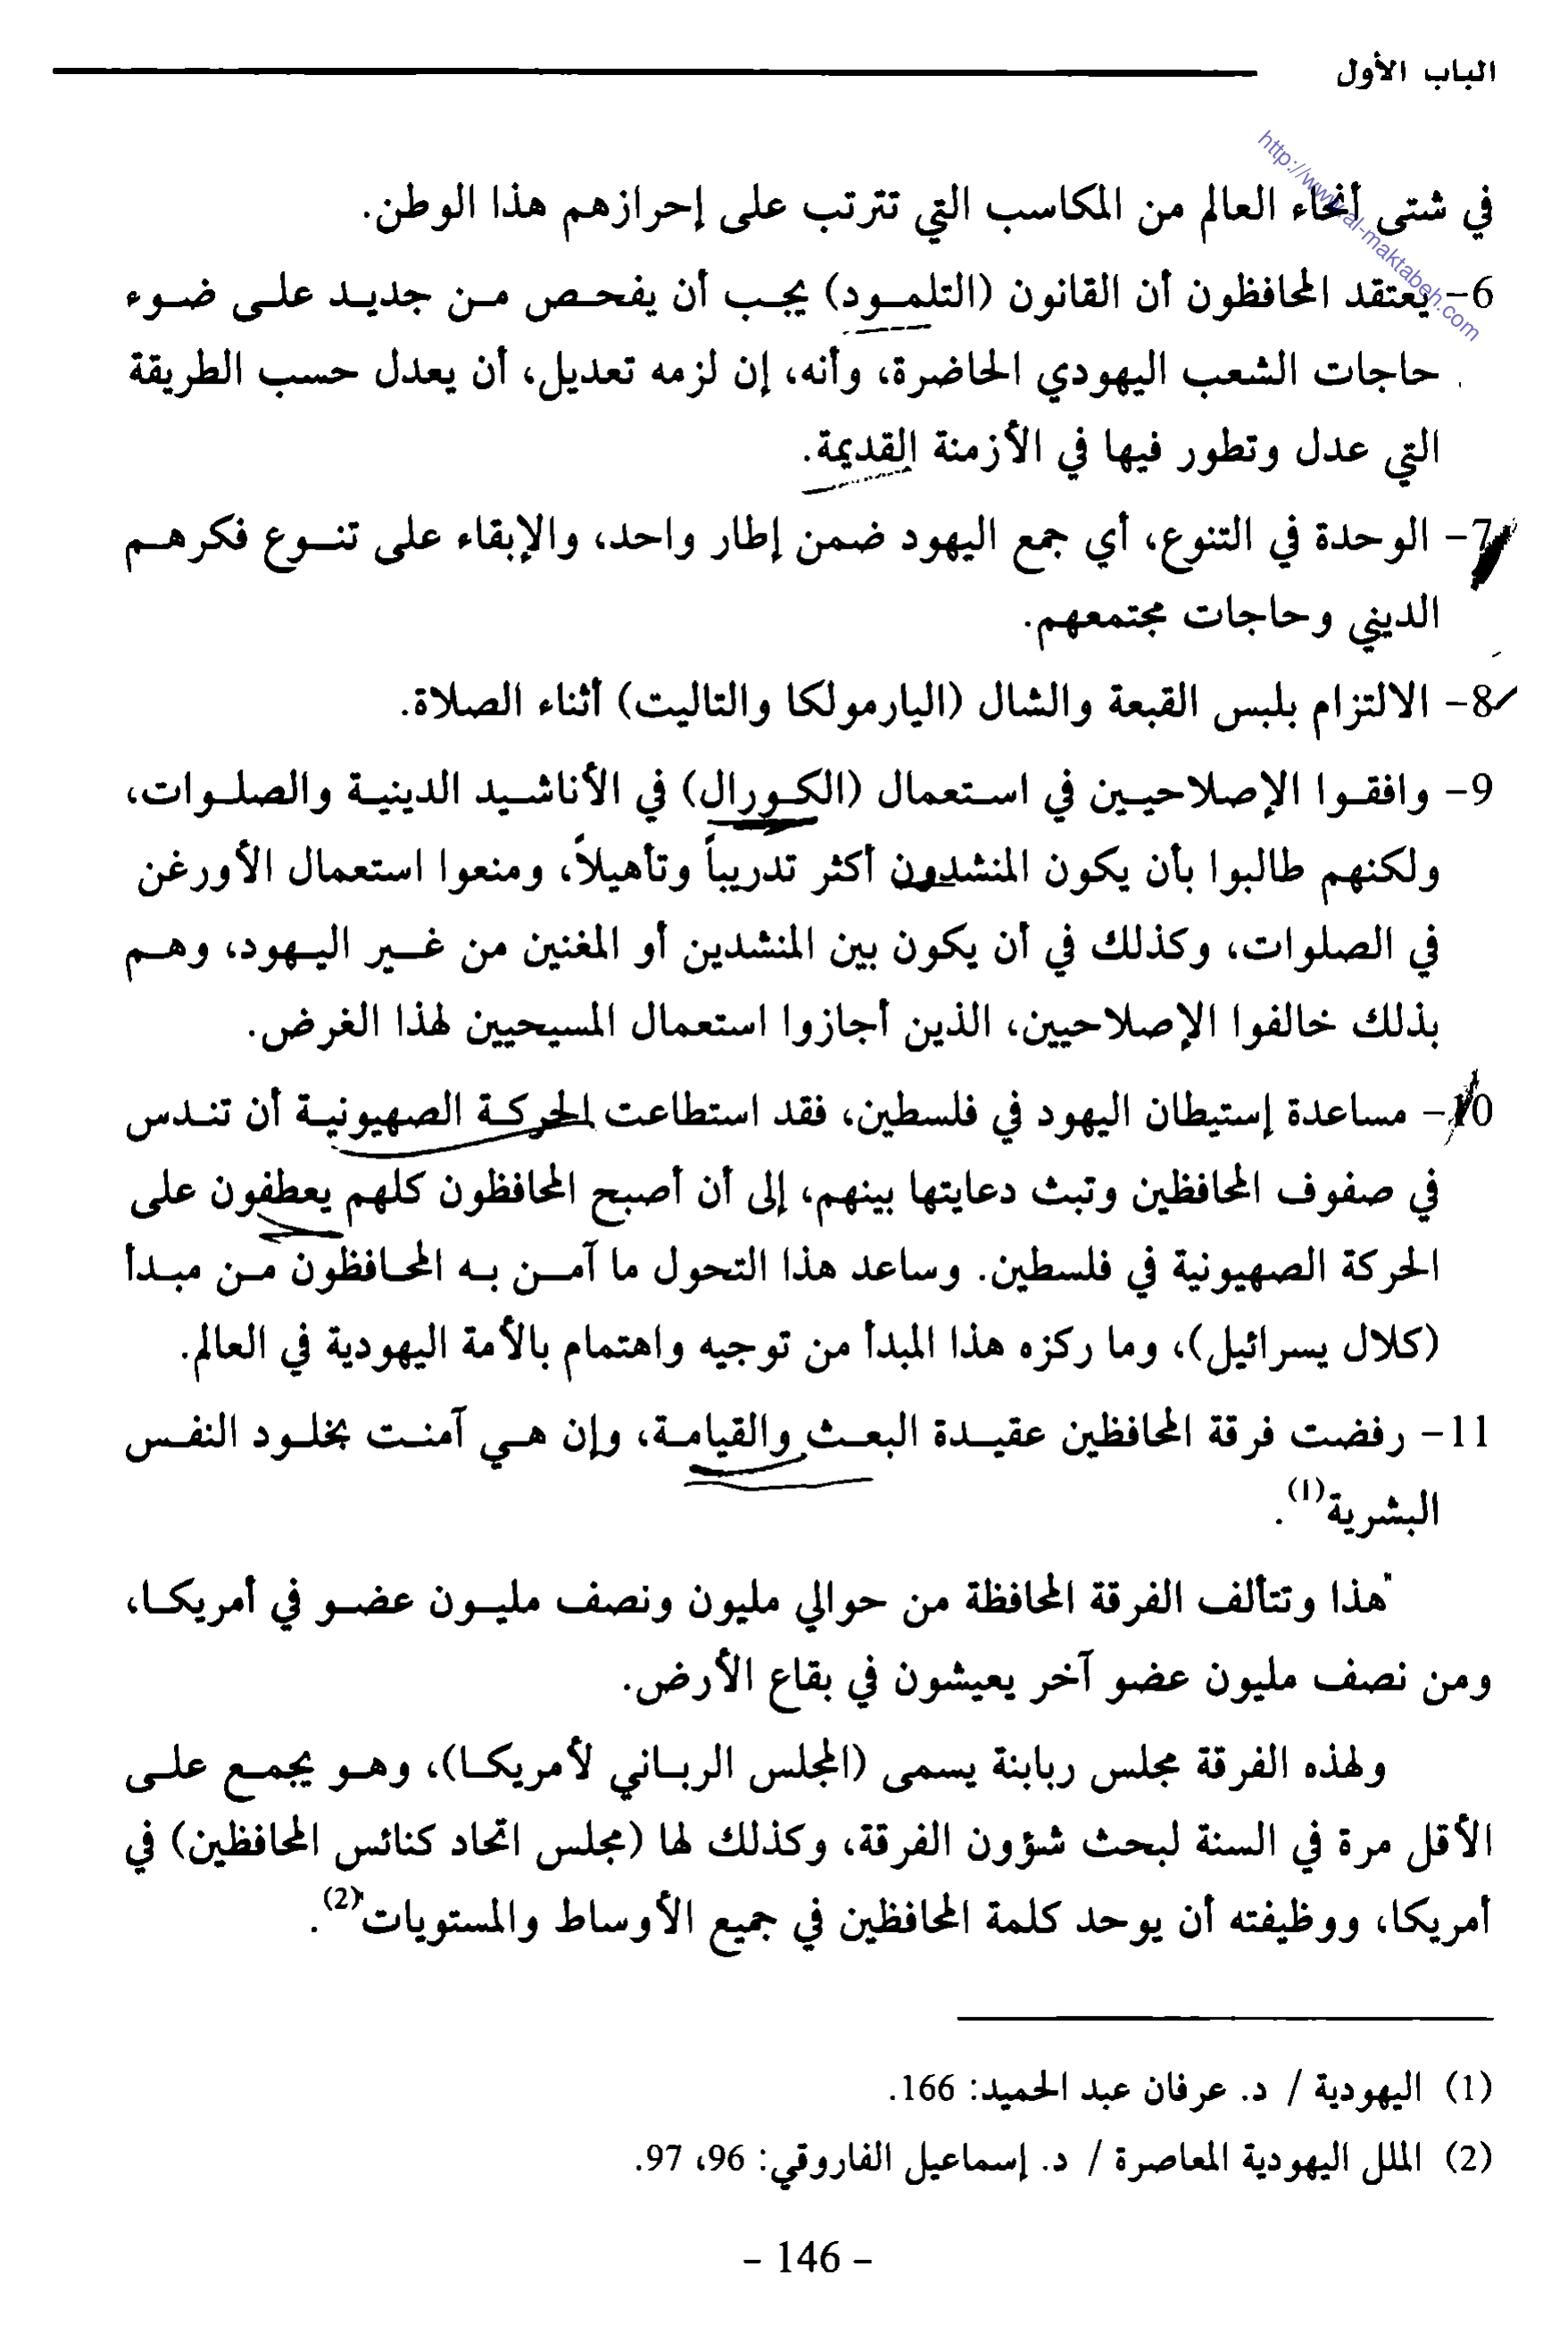 الباب الأول
http://www.al-maktabeh.com
في شتى أنحاء العالم من المكاسب التي تترتب على إحرازهم هذا الوطن.
6- يعتقد المحافظون أن القانون (التلمود) يجب أن يفحص من جديد على ضوء
حاجات الشعب اليهودي الحاضرة، وأنه، إن لزمه تعديل، أن يعدل حسب الطريقة
التي عدل وتطور فيها في الأزمنة القديمة.
7- الوحدة في التنوع، أي جمع اليهود ضمن إطار واحد، والإبقاء على تنوع فكرهم
الديني وحاجات مجتمعهم.
8- الالتزام بلبس القبعة والشال (اليارمولكا والتاليت) أثناء الصلاة.
9- وافقوا الإصلاحيين في استعمال (الكورال) في الأناشيد الدينية والصلوات،
ولكنهم طالبوا بأن يكون المنشدون أكثر تدريباً وتأهيلاً، ومنعوا استعمال الأورغن
في الصلوات، وكذلك في أن يكون بين المنشدين أو المغنين من غير اليهود، وهم
بذلك خالفوا الإصلاحيين، الذين أجازوا استعمال المسيحيين لهذا الغرض.
10- مساعدة إستيطان اليهود في فلسطين، فقد استطاعت الحركة الصهيونية أن تندس
في صفوف المحافظين وتبث دعايتها بينهم، إلى أن أصبح المحافظون كلهم يعطفون على
الحركة الصهيونية في فلسطين. وساعد هذا التحول ما آمن به المحافظون من مبدأ
(كلال يسرائيل)، وما ركزه هذا المبدأ من توجيه واهتمام بالأمة اليهودية في العالم.
11- رفضت فرقة المحافظين عقيدة البعث والقيامة، وإن هي آمنت بخلود النفس
البشرية(1).
"هذا وتتألف الفرقة المحافظة من حوالي مليون ونصف مليون عضو في أمريكا،
ومن نصف مليون عضو آخر يعيشون في بقاع الأرض.
ولهذه الفرقة مجلس ربابنة يسمى (المجلس الرباني لأمريكا)، وهو يجمع على
الأقل مرة في السنة لبحث شؤون الفرقة، وكذلك لها (مجلس اتحاد كنائس المحافظين) في
أمريكا، ووظيفته أن يوحد كلمة المحافظين في جميع الأوساط والمستويات"(2).
(1) اليهودية / د. عرفان عبد الحميد: 166.
(2) الملل اليهودية المعاصرة / د. إسماعيل الفاروقي: 96، 97.
- 146 -